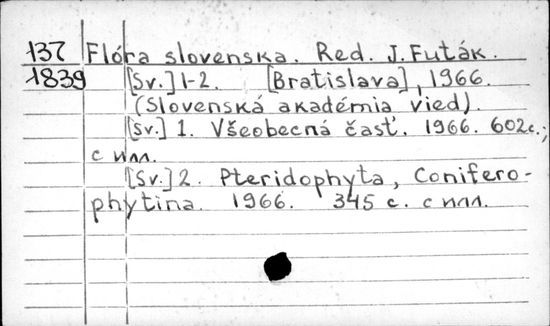 137 Flóra slovenska. Red. J. Futák.
1839 [Sv.] 1-2. [Bratislava], 1966.
(Slovenská akadémia vied).
[Sv.] 1. Všeobecná časť. 1966. 602 с.;
с илл.
[Sv.] 2. Pteridophyta, Conifero-
phytina. 1966. 345 с. с илл.